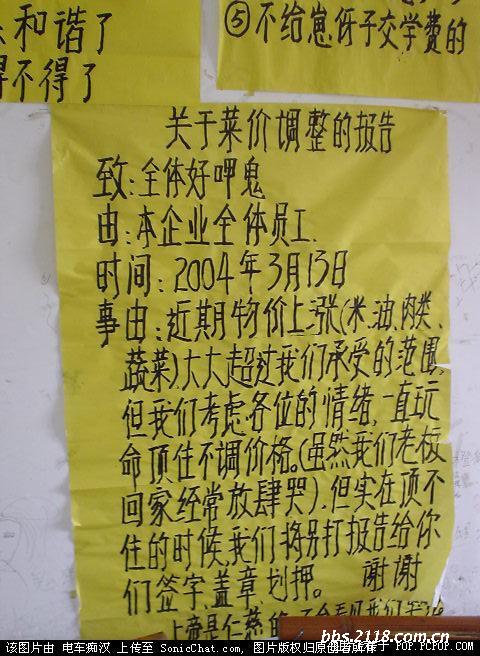 和谐了
得不得了
⑤不给崽伢子交学费的
关于菜价调整的报告
致:全体好呷鬼
由:本企业全体员工.
时间:2004年3月13日
事由:近期物价上涨(米、油、肉类、
蔬菜)大大超过我们承受的范围,
但我们考虑各位的情绪,一直玩
命顶住不调价格。(虽然我们老板
回家经常放肆哭).但实在顶不
住的时候,我们将另打报告给你
们签字、盖章、划押。 谢谢
上帝是仁慈的
bbs.2118.com.cn
该图片由 电车痴汉 上传至 SonicChat.com
图片版权归原创者所有
PCPOP.COM